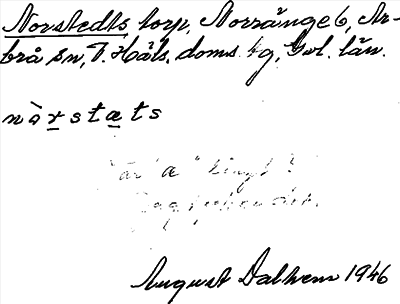 Norstedts torp, Norränge 6, Ar-
brå sn, V. Häls. doms. tg, Gvl. län.
nàrstæts
är "æ" långt?
August Dalhem 1946